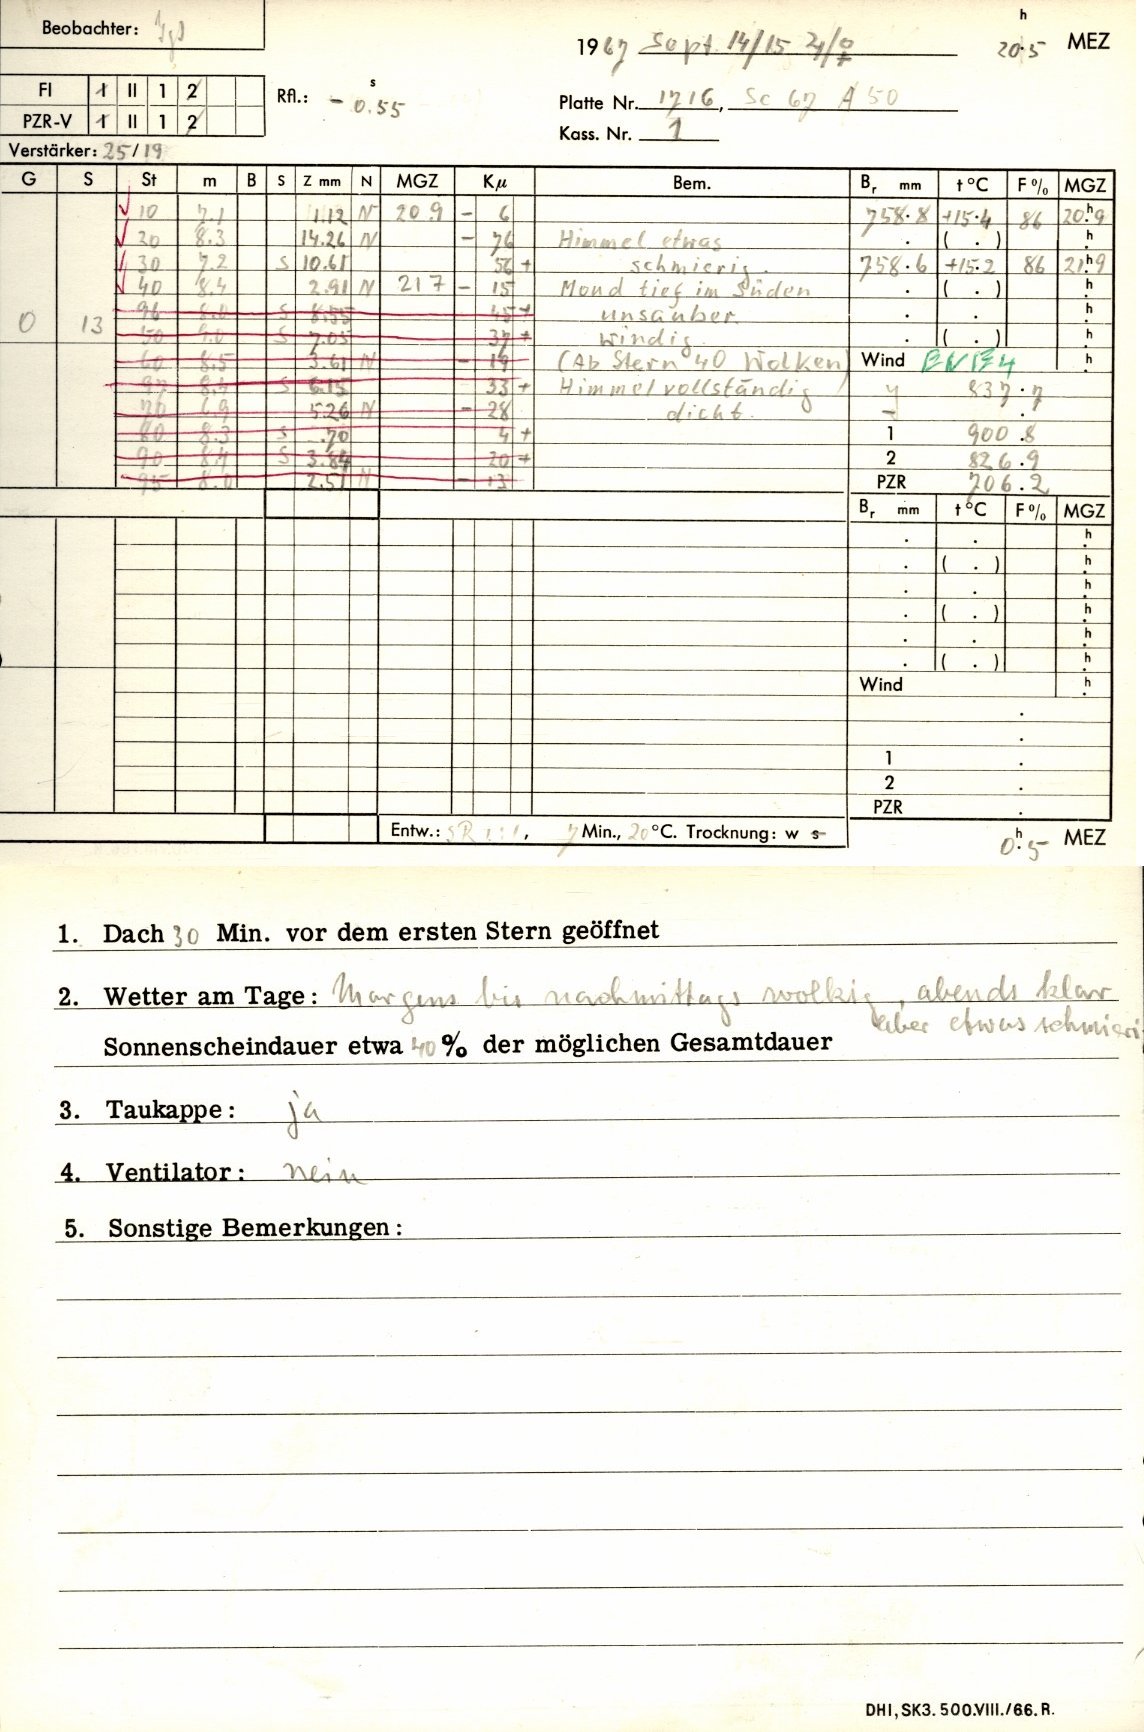 Beobachter:
1967 Sept. 14/15 ♃/♀ 20h.5 MEZ
FI I II 1 2
PZR-V I II 1 2
Rfl.: - 0s.55
Platte Nr. 1716, Sc 67 A 50
Kass. Nr. 1
Verstärker: 25/19
G S St m B S Z mm N MGZ Kμ Bem. Br mm t°C F% MGZ
10 7.1 1.12 N 20.9 - 6 758.8 +15.4 86 20h.9
20 8.3 14.26 N - 76 Himmel etwas . ( . ) h.
30 7.2 S 10.61 56 + schmierig. 758.6 +15.2 86 21h.9
40 8.4 2.91 N 21.7 - 15 Mond tief im Süden . ( . ) h.
0 13 96 8.0 S 8.55 45 + unsauber. . . h.
50 9.0 S 7.05 37 + windig. . ( . ) h.
60 8.5 3.61 N - 19 (Ab Stern 40 Wolken) Wind ENE 4 h.
97 8.4 S 6.15 33 + Himmel vollständig 837.7
70 6.9 5.26 N - 28 dicht. .
80 8.3 S .70 4 + 1 900.8
90 8.4 S 3.84 20 + 2 826.9
95 8.0 2.51 N - 13 PZR 706.2
Br mm t°C F% MGZ
. . h.
. ( . ) h.
. . h.
. ( . ) h.
. . h.
. ( . ) h.
Wind h.
.
.
1 .
2 .
PZR .
Entw.: SR 1:1, 7 Min., 20°C. Trocknung: w s
0h.5 MEZ
1. Dach 30 Min. vor dem ersten Stern geöffnet
2. Wetter am Tage: Morgens bis nachmittags wolkig, abends klar
aber etwas schmieri
Sonnenscheindauer etwa 40% der möglichen Gesamtdauer
3. Taukappe: ja
4. Ventilator: nein
5. Sonstige Bemerkungen:
DHI, SK3. 500.VIII./66. R.